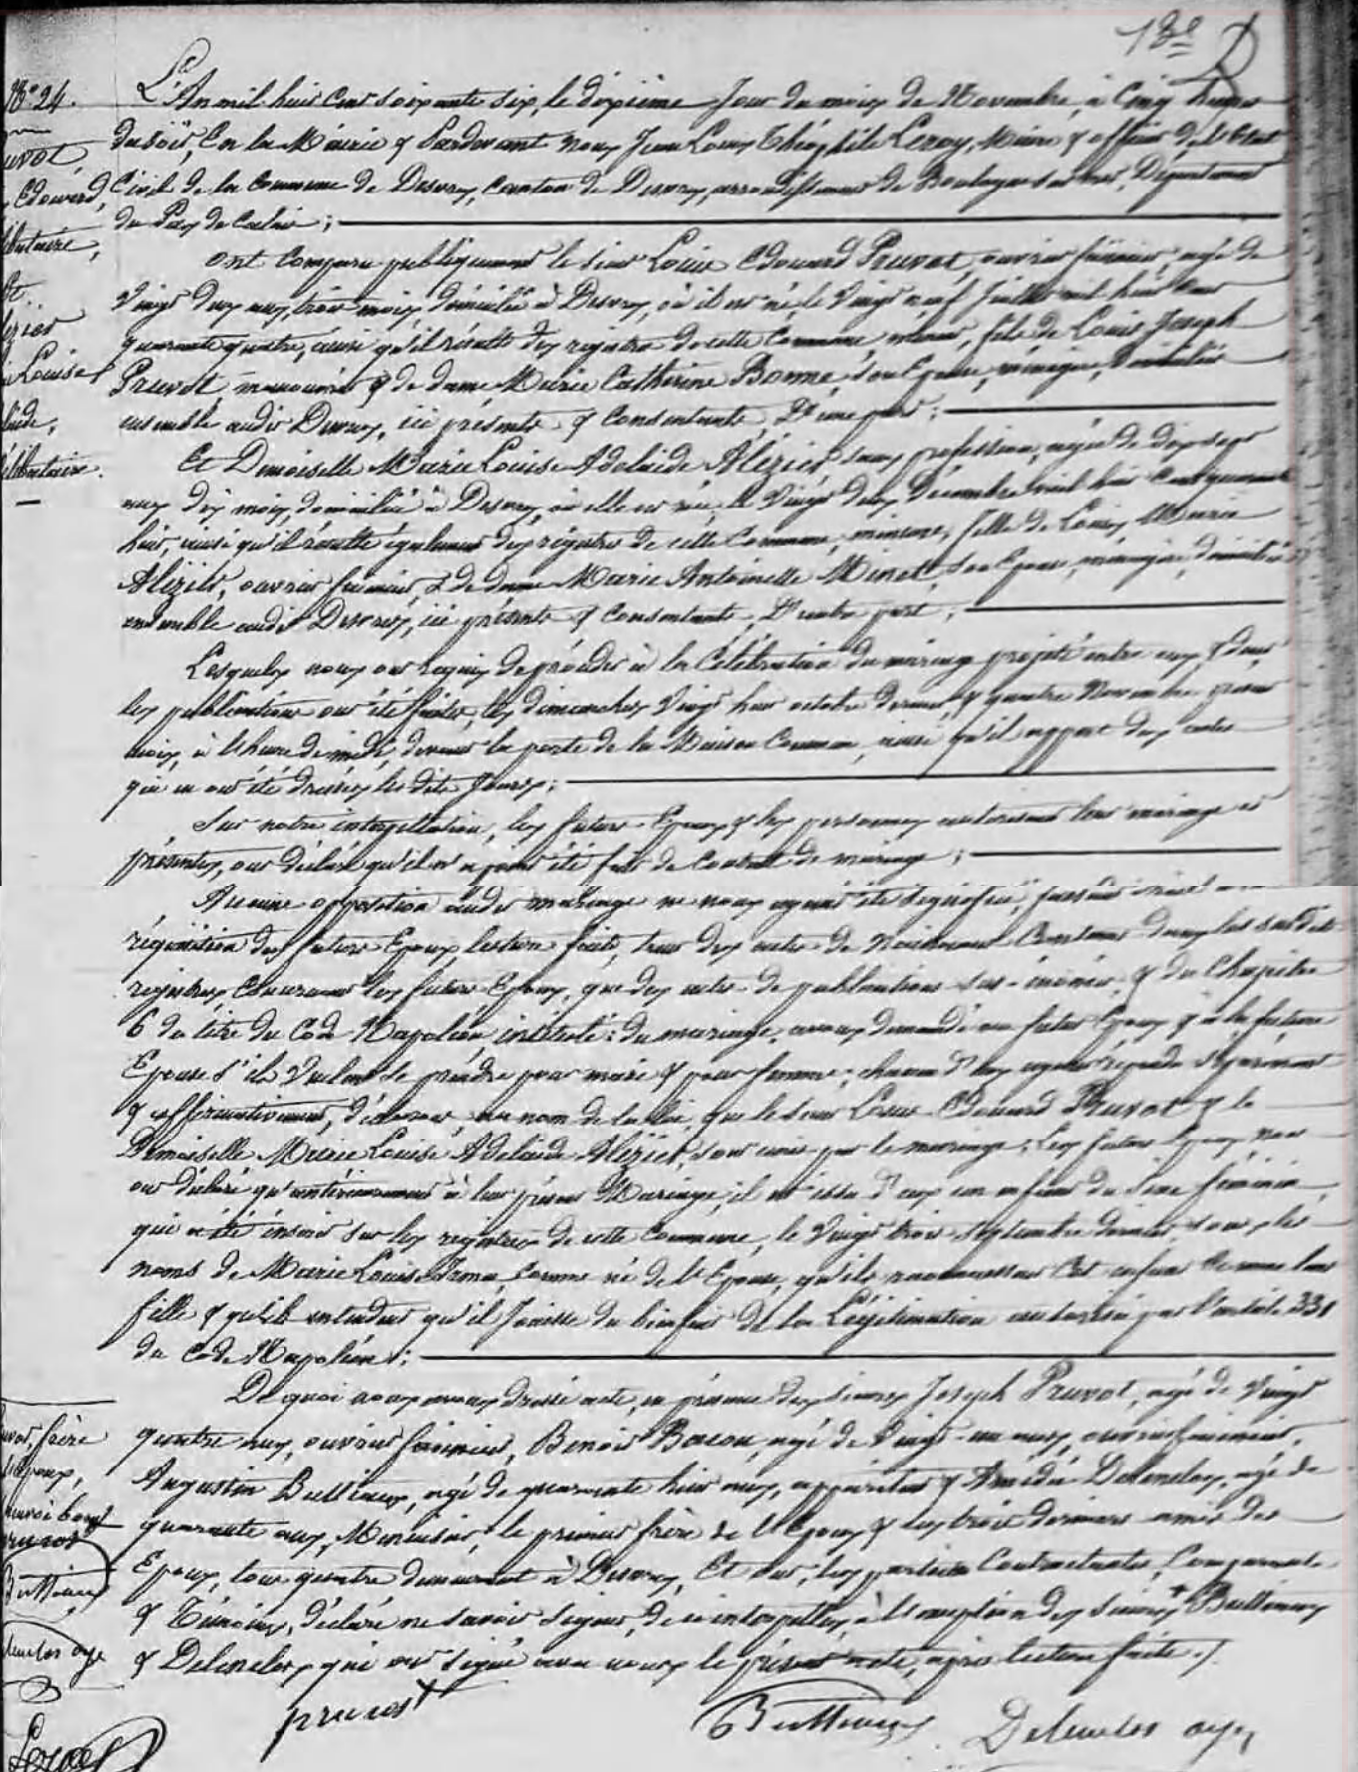 N° 24.
L'An mil huit cent soixante six, le dixième Jour du mois de Novembre, à Cinq heures
du soir, En la Mairie & Pardevant nous Jean Louis Théophile Leroy, Maire & officier de l'Etat
Civil de la Commune de Desvres, Canton de Desvres, arrondissement de Boulogne sur mer, Département
du Pas de Calais ;
ont Comparu publiquement le sieur Louis Edouard Pruvot, ouvrier , agé de
Vingt deux ans, trois mois, domicilié à Desvres, où il est né, le Vingt neuf Juillet mil huit cent
quarante quatre, ainsi qu'il résulte des registres de cette Commune, mineur, fils de Louis Joseph
Pruvot, & de dame Marie Catherine Bonne, son Epouse, ménagère, domiciliés
ensemble audit Desvres, ici présents & Consentants, D'une part ;
Et Demoiselle Marie Louise Adelaïde Alizier, sans profession, agée de dix sept
ans dix mois, domiciliée à Desvres, où elle est née, le Vingt deux Décembre mil huit Cent quarante
huit, ainsi qu'il résulte également des registres de cette Commune, mineure, fille de Louis Marie
Alizier, ouvrier , & de dame Marie Antoinette Minet, son Epouse, ménagère, domiciliés
ensemble audit Desvres, ici présents & Consentants, D'autre part ;
Lesquels nous ont requis de procéder à la Célébration du mariage projeté entre eux & dont
les publications ont été faites, les dimanches Vingt huit octobre dernier & quatre Novembre présent
mois, à l'heure de midi, devant la porte de la Maison Commune, ainsi qu'il appert des actes
qui en ont été dressés les dits Jours ;
Sur notre interpellation, les futurs Epoux & les personnes autorisant leur mariage ici
présentes, ont déclaré qu'il n'a point été fait de Contrat de mariage ;
Aucune opposition audit mariage ne nous ayant été signifiée, faisant droit à la
réquisition des futurs Epoux, lecture faite, tant des actes de Naissance Contenus dans les susdits
registres concernant les futurs Epoux, que des actes de publications sus-énoncés, & du Chapitre
6 du titre du Code Napoléon intitulé : du mariage, avons demandé au futur Epoux & à la future
Epouse s'ils Veulent se prendre pour mari & pour femme ; chacun d'eux ayant répondu séparément
& affirmativement, déclarons, au nom de la loi, que le sieur Louis Edouard Pruvot & la
Demoiselle Marie Louise Adelaïde Alizier, sont unis par le mariage ; Les futurs Epoux, nous
ont déclaré qu'antérieurement à leur présent Mariage, il est issu d'eux un enfant du sexe féminin,
qui a été inscrit sur les registres de cette Commune, le Vingt trois septembre dernier, sous les
noms de Marie Louise , Comme né de l'Epouse, qu'ils reconnaissent Cet enfant Comme leur
fille & qu'ils entendent qu'il Jouisse du bienfait de la Légitimation autorisée par l'article 331
du Code Napoléon ;
De quoi nous avons dressé acte, en présence des sieurs Joseph Pruvot, agé de Vingt
quatre ans, ouvrier , Benoit Bacon, agé de Vingt un ans, ouvrier ,
Augustin Buttiaux, agé de quarante huit ans, appariteur & Amédée Delenclos, agé de
quarante ans, Menuisier, le premier frère de l'Epoux & les trois derniers amis des
Epoux, tous quatre demeurant à Desvres, Et ont, les parties Contractantes, Comparants
& Témoins, déclaré ne savoir signer, de ce interpellés, à l'exception des sieurs + Buttiaux
& Delenclos, qui ont signé avec nous le présent acte, après lecture faite ./.
pruvost
Buttiaux
Delenclos
Leroy
uvot,
Edouard,
libataire,
Alizier
Louise
laïde,
élibataire.
uvot, frère
l'Epoux,
pruvost
Buttiaux